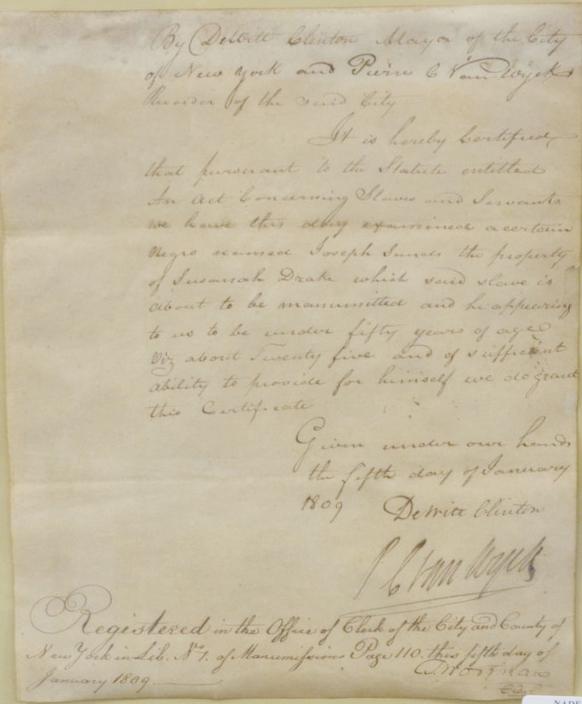 By DeWitt Clinton Mayor of the City
of New York and Pierre C Van Wyck
Recorder of the said City
It is hereby Certified,
that pursuant to the Statute entitled
An Act Concerning Slaves and Servants
we have this day examined a certain
Negro named Joseph the property
of Susannah Drake which said slave is
about to be manumitted and he appearing
to us to be under fifty years of age
viz about Twenty five and of sufficient
ability to provide for himself we do grant
this Certificate
Given under our hands
the fifth day of January
1809 DeWitt Clinton
P C Van Wyck
Registered in the Office of Clerk of the City and County of
New York in Lib. No. 1. of Manumissions Page 110. this fifth day of
January 1809.